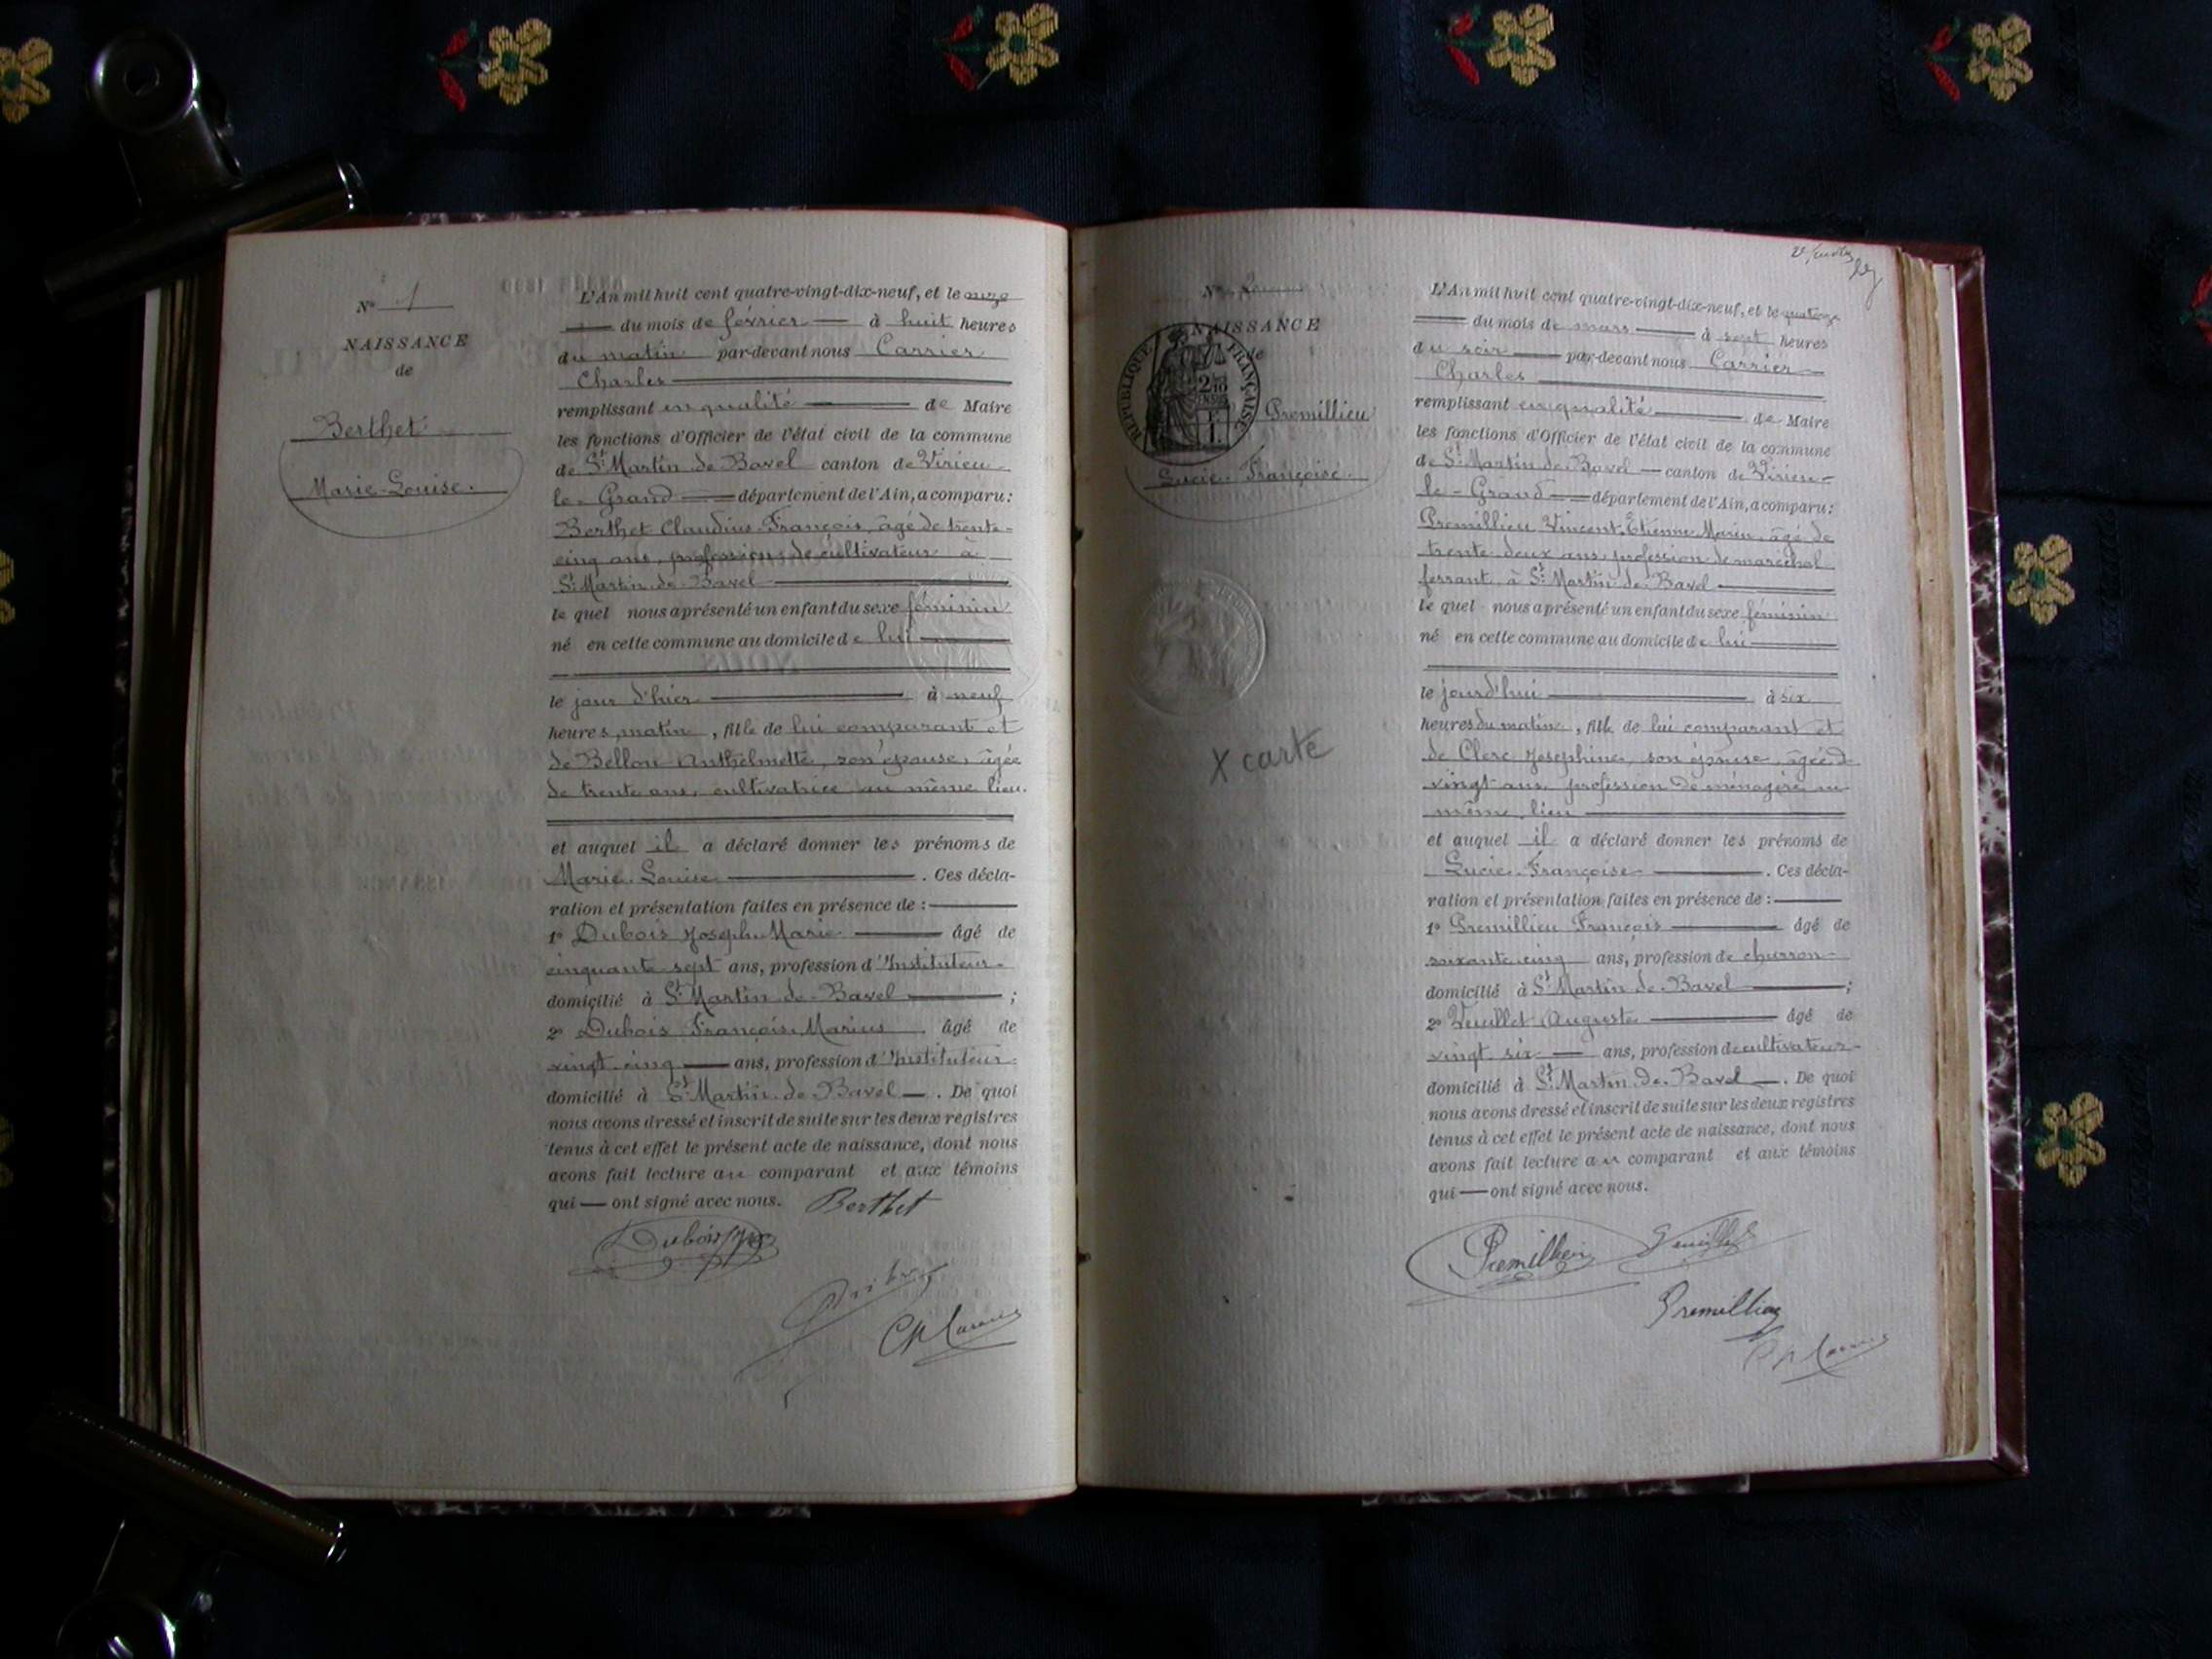 N° 1
NAISSANCE
de
Berthet
Marie-Louise.
L'An mil huit cent quatre-vingt-dix-neuf, et le onze
du mois de février à huit heures
du matin par-devant nous Carrier
Charles
remplissant en qualité de Maire
les fonctions d'Officier de l'état civil de la commune
de St Martin de Bavel canton de Virieu-
le-Grand département de l'Ain, a comparu:
Berthet Claudius François, âgé de trente-
cinq ans, profession de cultivateur à
St Martin de Bavel
le quel nous a présenté un enfant du sexe féminin
né en cette commune au domicile de lui
le jour d'hier à neuf
heures matin, fille de lui comparant et
de Bellon Anthelmette, son épouse, âgée
de trente ans, cultivatrice au même lieu.
et auquel il a déclaré donner les prénoms de
Marie Louise. Ces décla-
ration et présentation faites en présence de :
1° Dubois Joseph Marie âgé de
cinquante sept ans, profession d'Instituteur
domicilié à St Martin de Bavel ;
2° Dubois François Marius âgé de
vingt cinq ans, profession d'Instituteur
domicilié à St Martin de Bavel. De quoi
nous avons dressé et inscrit de suite sur les deux registres
tenus à cet effet le présent acte de naissance, dont nous
avons fait lecture au comparant et aux témoins
qui ont signé avec nous. Berthet
Dubois
N° 2
NAISSANCE
de
RÉPUBLIQUE FRANÇAISE
Premillieu
Lucie Françoise.
X carte
2e feuillet
L'An mil huit cent quatre-vingt-dix-neuf, et le quatorze
du mois de mars à sept heures
du soir par-devant nous Carrier
Charles
remplissant en qualité de Maire
les fonctions d'Officier de l'état civil de la commune
de St Martin de Bavel canton de Virieu-
le-Grand département de l'Ain, a comparu:
Premillieu Vincent Etienne Marin, âgé de
trente deux ans, profession de maréchal
ferrant à St Martin de Bavel
le quel nous a présenté un enfant du sexe féminin
né en cette commune au domicile de lui
le jourd'hui à six
heures du matin, fille de lui comparant et
de Clerc Joséphine, son épouse, âgée de
vingt ans, profession de ménagère au
même lieu
et auquel il a déclaré donner les prénoms de
Lucie Françoise. Ces décla-
ration et présentation faites en présence de :
1° Premillieu François âgé de
soixante cinq ans, profession de charron
domicilié à St Martin de Bavel ;
2° Veuillet Auguste âgé de
vingt six ans, profession de cultivateur
domicilié à St Martin de Bavel. De quoi
nous avons dressé et inscrit de suite sur les deux registres
tenus à cet effet le présent acte de naissance, dont nous
avons fait lecture au comparant et aux témoins
qui ont signé avec nous.
Premillieu Veuillet
Premillieu